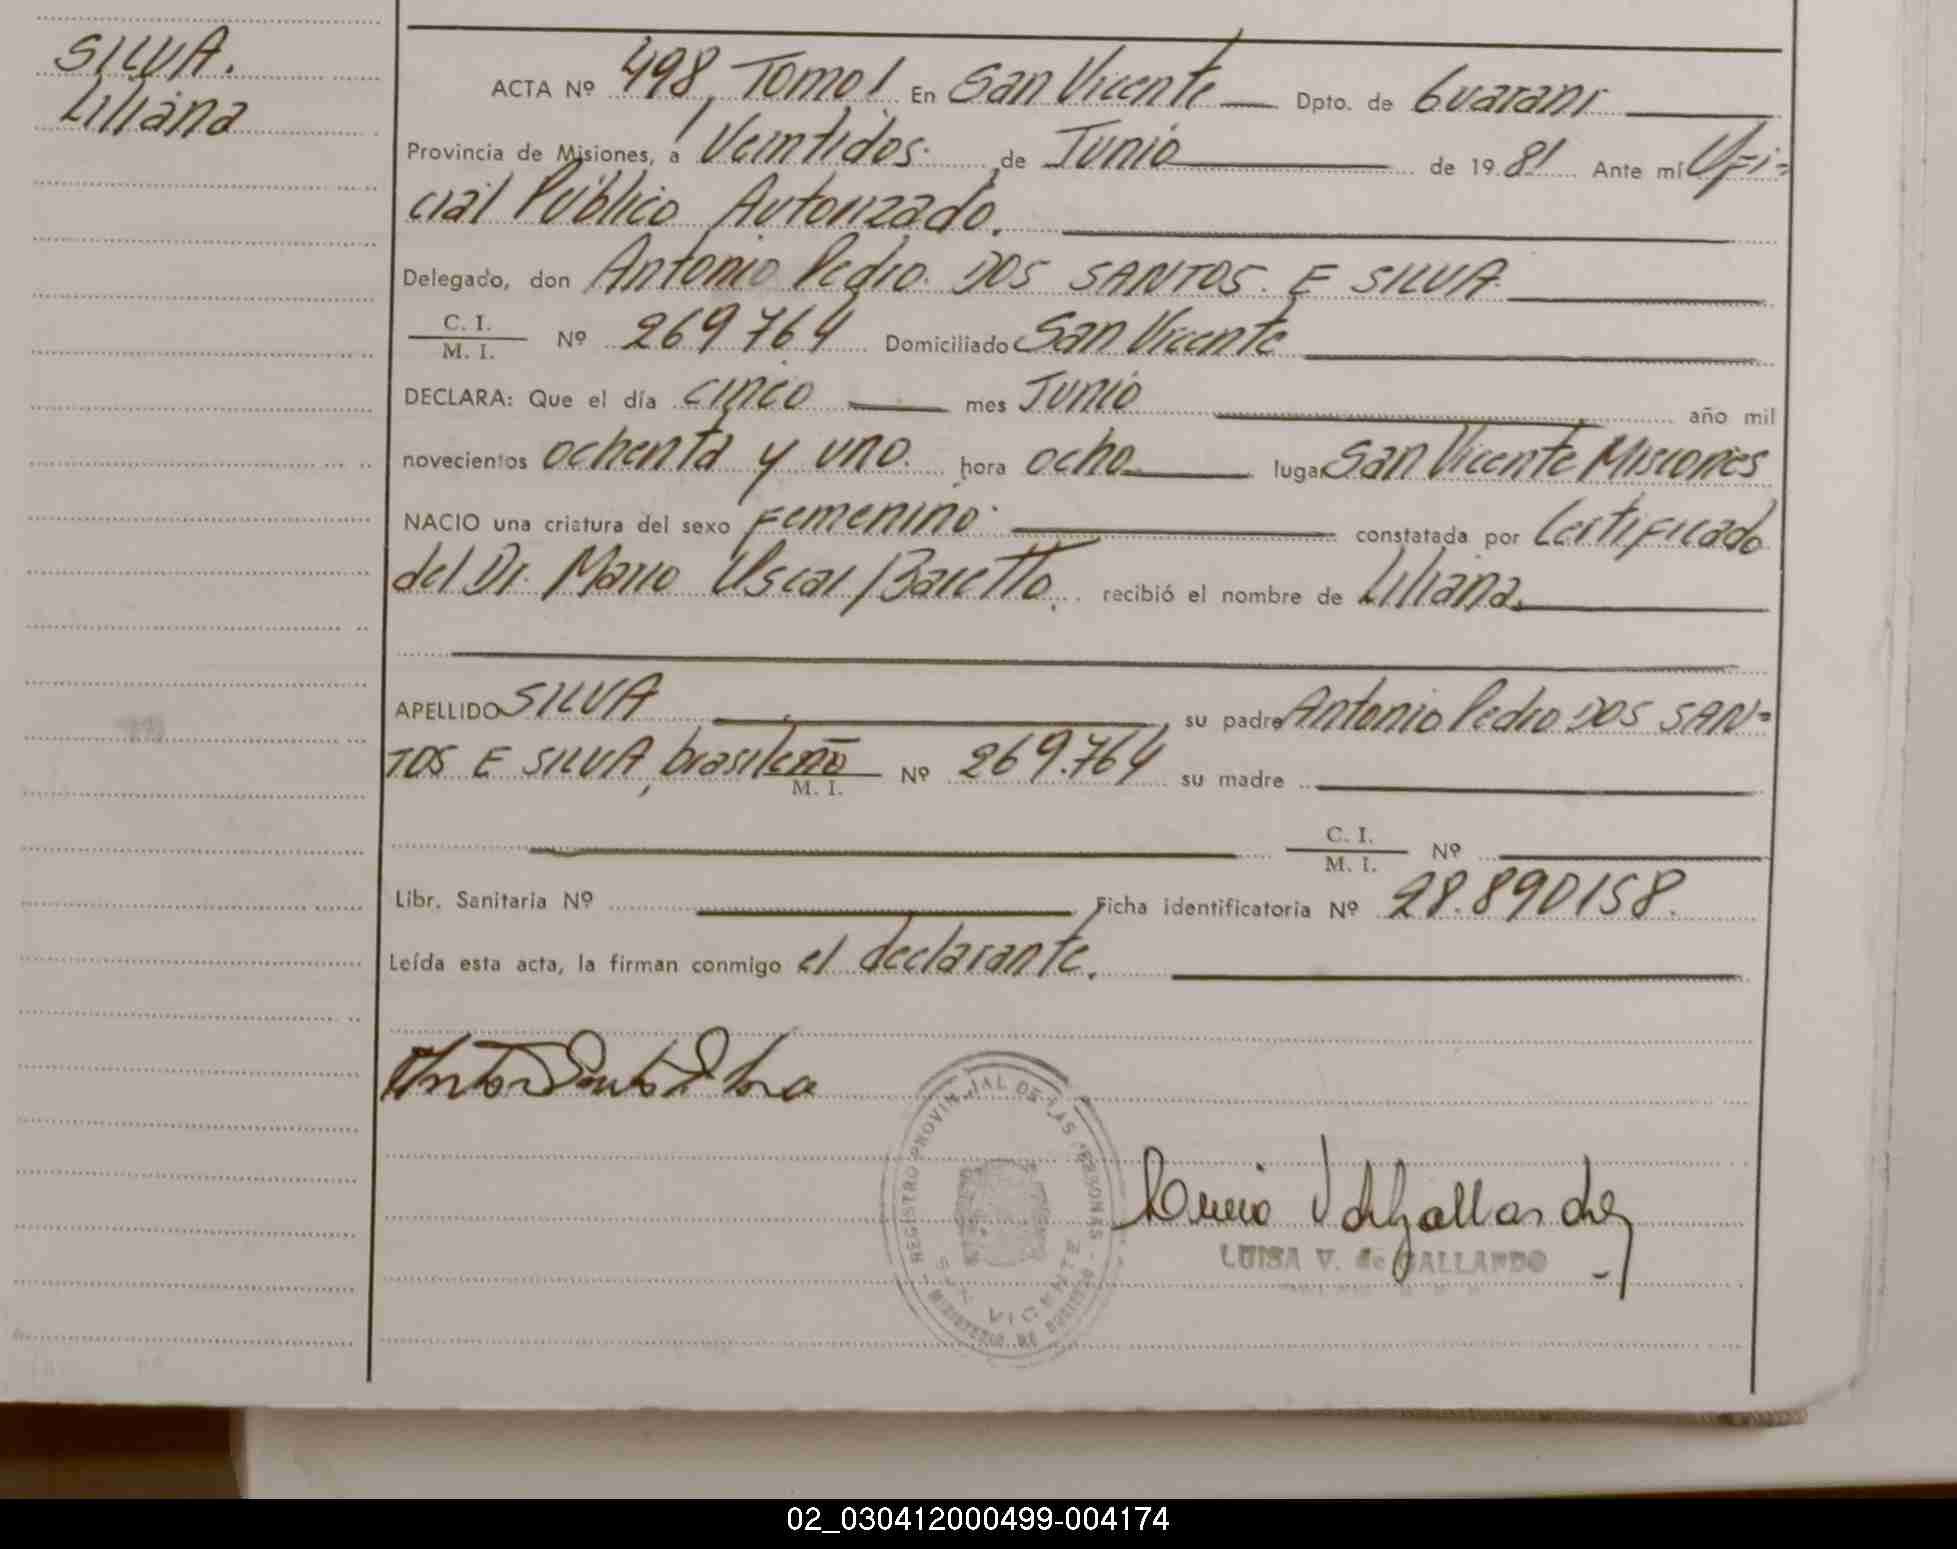 SILVA.
Liliana
ACTA Nº 498, Tomo I En San Vicente Dpto. de Guaraní
Provincia de Misiones, a Veintidos de Junio de 1981 Ante mí Ofi-
cial Público Autorizado.
Delegado, don Antonio Pedro DOS SANTOS E SILVA
C. I.
M. I. Nº 269764 Domiciliado San Vicente
DECLARA: Que el día cinco mes Junio año mil
novecientos ochenta y uno. hora ocho lugar San Vicente Misiones
NACIO una criatura del sexo Femenino constatada por Certificado
del Dr. Mario Oscar Baretto. recibió el nombre de Liliana.
APELLIDO SILVA, su padre Antonio Pedro DOS SAN-
TOS E SILVA, brasileño M. I. Nº 269.764 su madre
C. I.
M. I. Nº
Libr. Sanitaria Nº Ficha identificatoria Nº 28.890158.
Leída esta acta, la firman conmigo el declarante.
REGISTRO PROVINCIAL DE LAS PERSONAS
SAN VICENTE
LUISA V. de GALLARDO
02_030412000499-004174